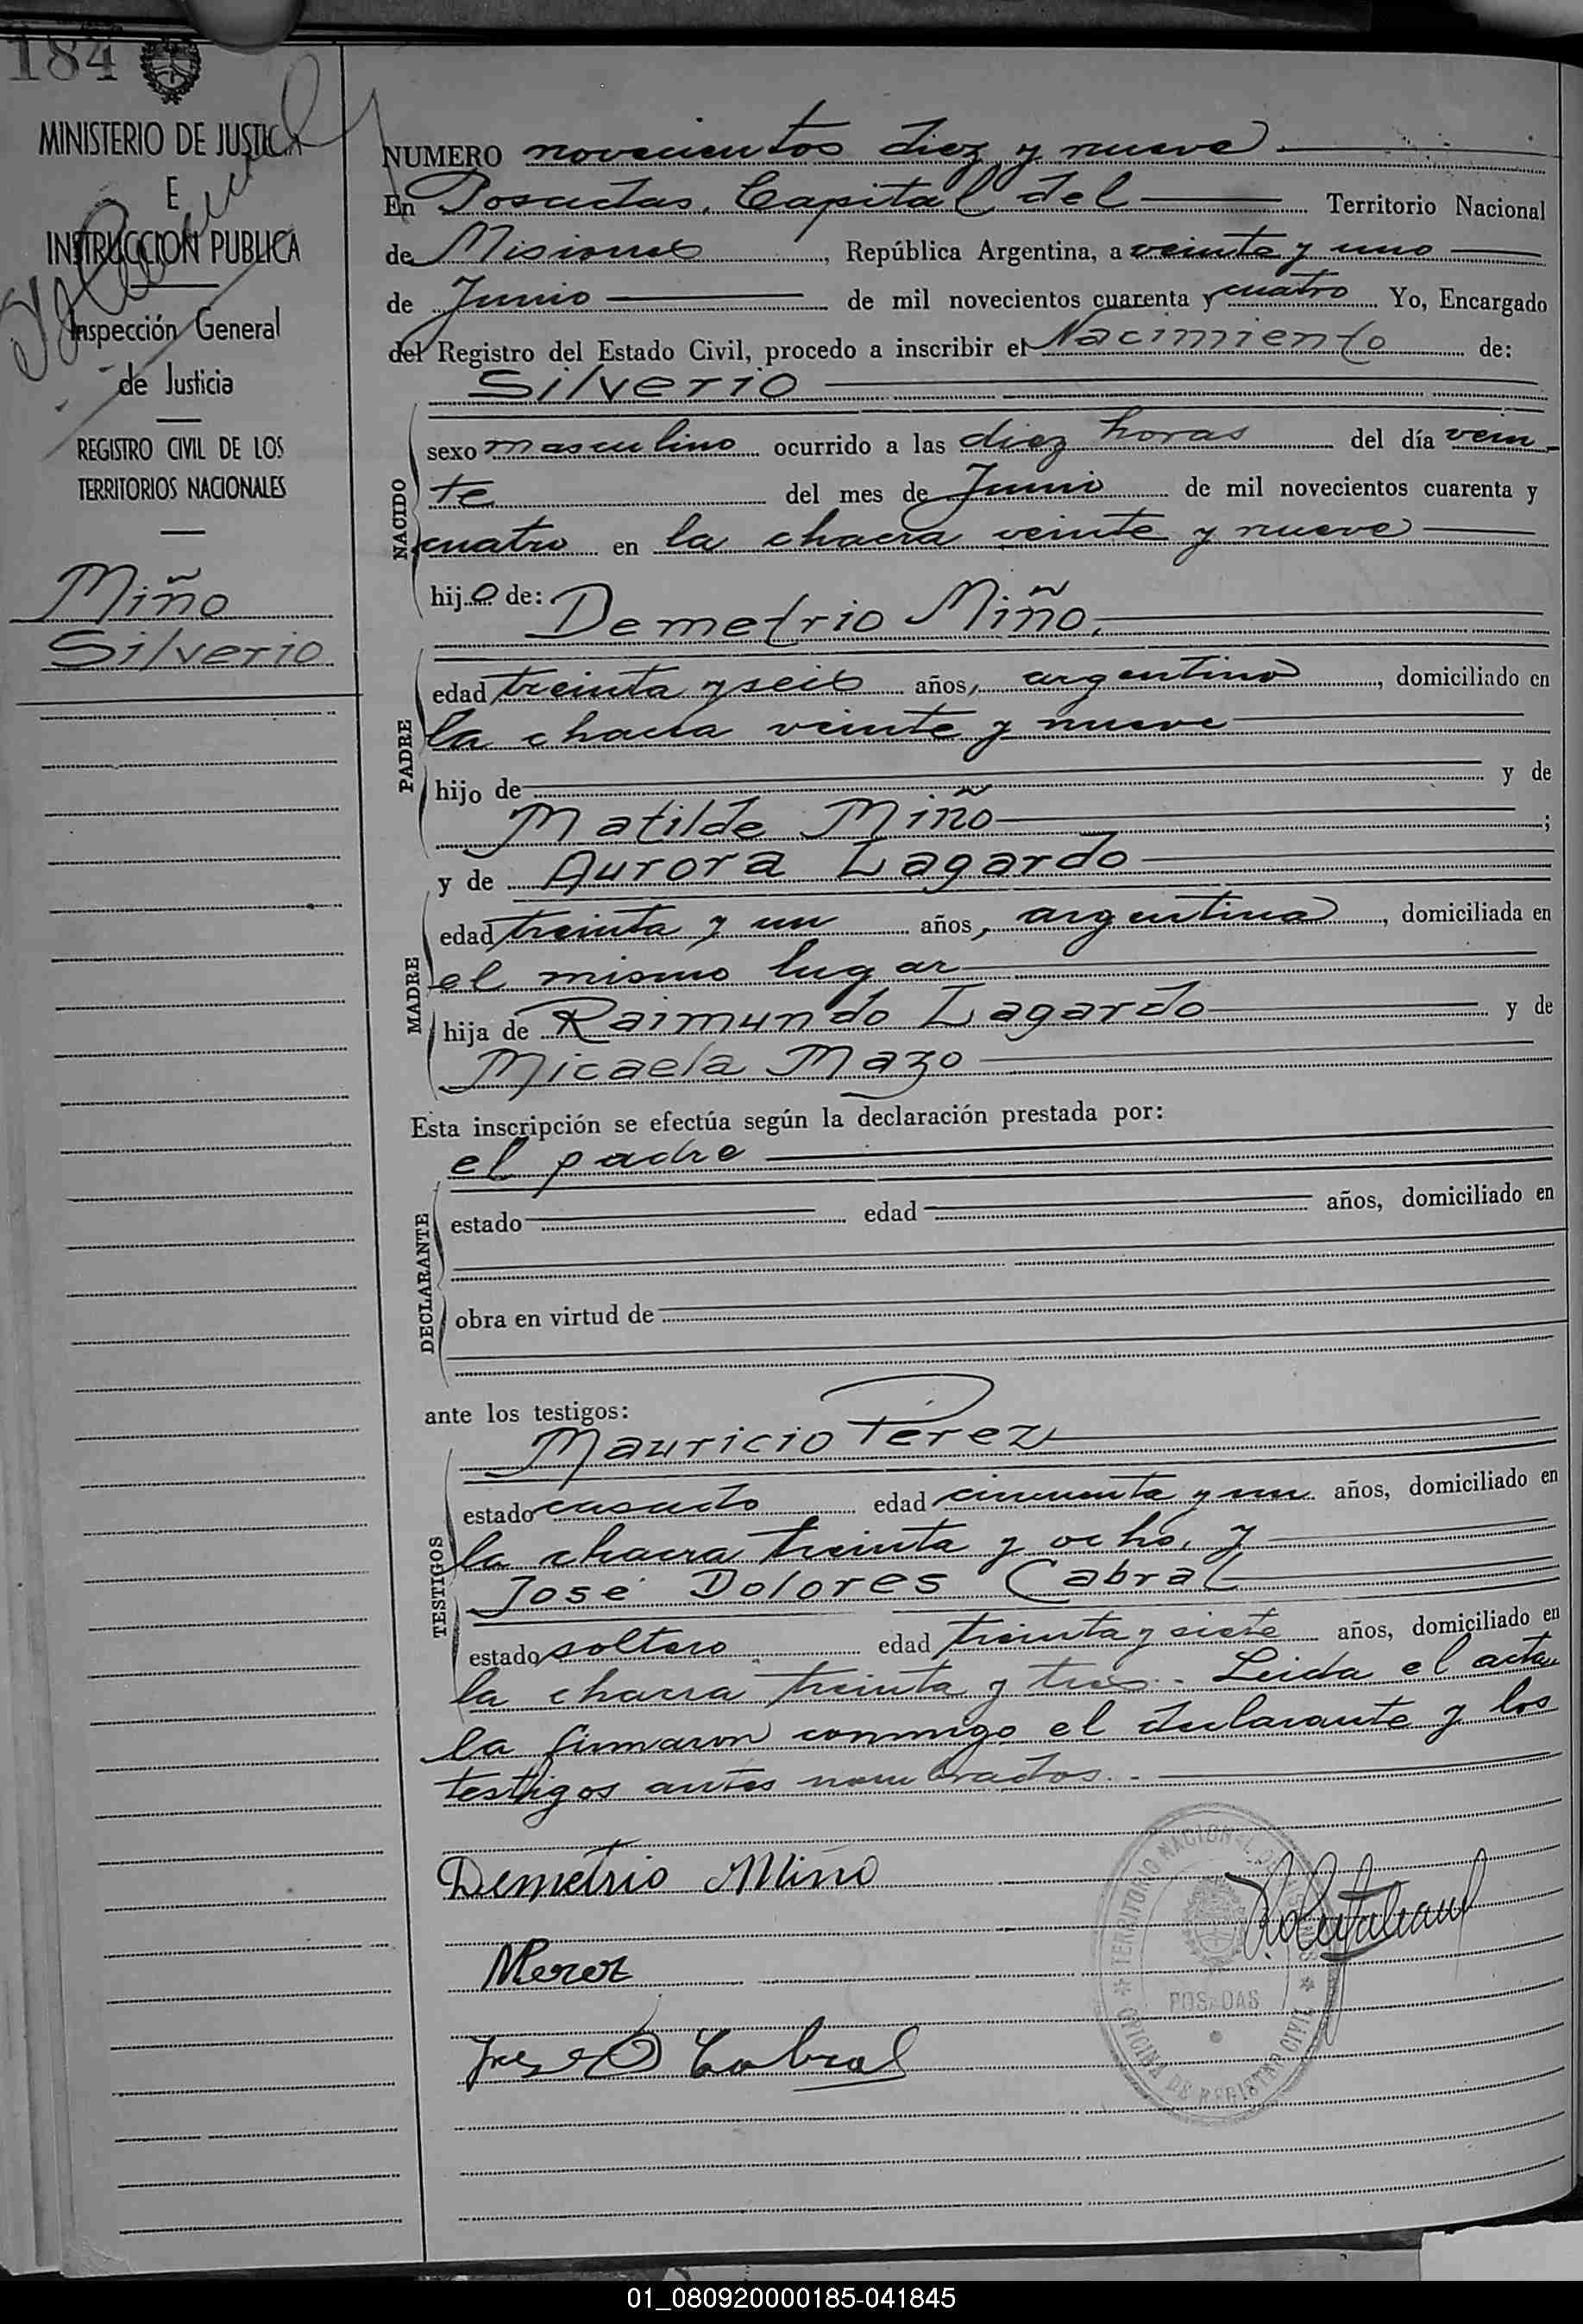 184
MINISTERIO DE JUSTICIA
E
INSTRUCCION PUBLICA
Inspección General
de Justicia
REGISTRO CIVIL DE LOS
TERRITORIOS NACIONALES
Miño
Silverio
NUMERO novecientos diez y nueve
En Posadas, Capital del Territorio Nacional
de Misiones, República Argentina, a veinte y uno
de Junio de mil novecientos cuarenta y cuatro Yo, Encargado
del Registro del Estado Civil, procedo a inscribir el Nacimiento de:
Silverio
NACIDO
sexo masculino ocurrido a las diez horas del día vein-
te del mes de Junio de mil novecientos cuarenta y
cuatro en la chacra veinte y nueve
hijo de:
Demetrio Miño,
PADRE
edad treinta y seis años, argentino, domiciliado en
la chacra veinte y nueve
hijo de y de
Matilde Miño ;
y de Aurora Lagardo
MADRE
edad treinta y un años, argentina, domiciliada en
el mismo lugar
hija de Raimundo Lagardo y de
Micaela Mazo
Esta inscripción se efectúa según la declaración prestada por:
el padre
DECLARANTE
estado edad años, domiciliado en
obra en virtud de
ante los testigos:
Mauricio Pérez
TESTIGOS
estado casado edad cincuenta y un años, domiciliado en
la chacra treinta y ocho, y
José Dolores Cabral
estado soltero edad treinta y siete años, domiciliado en
la chacra treinta y tres. Leida el acta
la firmaron conmigo el declarante y los
testigos antes nombrados.-
Demetrio Miño
MPerez
Jose D Cabral
TERRITORIO NACIONAL DE MISIONES
POSADAS
OFICINA DE REGISTRO CIVIL
01_080920000185-041845